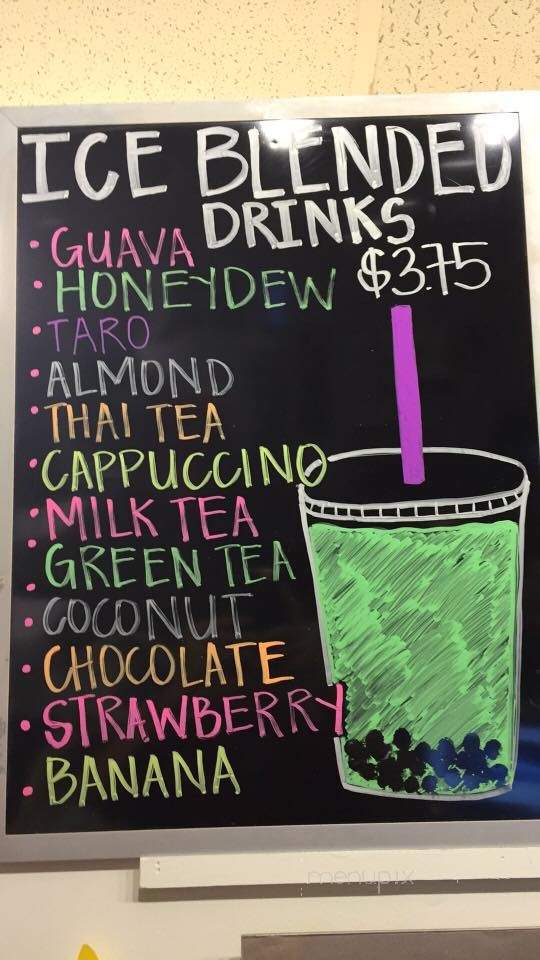 ICE BLENDED
DRINKS
$3.75
• GUAVA
• HONEYDEW
• TARO
• ALMOND
• THAI TEA
• CAPPUCCINO
• MILK TEA
• GREEN TEA
• COCONUT
• CHOCOLATE
• STRAWBERRY
• BANANA
menupix